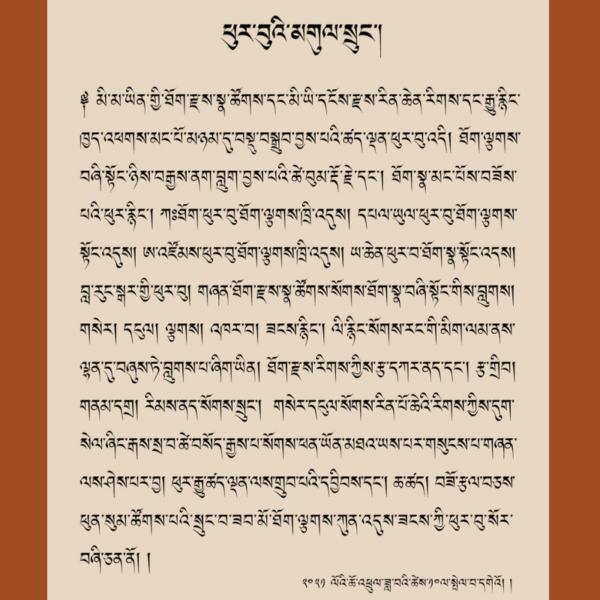 ཕུར་བུའི་མགུལ་སྲུང་།
༈ མི་མ་ཡིན་གྱི་ཐོག་རྫས་སྣ་ཚོགས་དང་མི་ཡི་དངོས་རྫས་རིན་ཆེན་རིགས་དང་རྒྱུ་རྙིང་
ཁྱད་འཕགས་མང་པོ་མཉམ་དུ་བསྡུ་བསྒྲུབ་བྱས་པའི་ཚད་ལྡན་ཕུར་བུ་འདི། ཐོག་ལྕགས་
བཞི་སྟོང་ཉིས་བརྒྱས་ནག་བླུག་བྱས་པའི་ཚེ་བུམ་རྡོ་རྗེ་དང་། ཐོག་སྣ་མང་པོས་བཟོས་
པའི་ཕུར་རྙིང་། ཀཿཐོག་ཕུར་བུ་ཐོག་ལྕགས་ཁྲི་འདུས། དཔལ་ཡུལ་ཕུར་བུ་ཐོག་ལྕགས་
སྟོང་འདུས། ཨ་འཛོམས་ཕུར་བུ་ཐོག་ལྕགས་ཁྲི་འདུས། ཡ་ཆེན་ཕུར་བ་ཐོག་སྣ་སྟོང་འདས།
བླ་རུང་སྒར་གྱི་ཕུར་བུ། གཞན་ཐོག་རྫས་སྣ་ཚོགས་སོགས་ཐོག་སྣ་བཞི་སྟོང་གིས་བླུགས།
གསེར། དངུལ། ལྕགས། འཁར་བ། ཟངས་རྙིང་། ལི་རྙིང་སོགས་རང་གི་མིག་ལམ་ནས་
ལྷན་དུ་བཞུས་ཏེ་བླུགས་པ་ཞིག་ཡིན། ཐོག་རྫས་རིགས་ཀྱིས་རྩ་དཀར་ནད་དང་། རྩ་གྲིབ།
གནམ་དགྲ། རིམས་ནད་སོགས་སྲུང་། གསེར་དངུལ་སོགས་རིན་པོ་ཆེའི་རིགས་ཀྱིས་དུག་
སེལ་ཞིང་རྒས་སྲ་བ་ཚེ་བསོད་རྒྱས་པ་སོགས་ཕན་ཡོན་མཐའ་ཡས་པར་གསུངས་པ་གཞན་
ལས་ཤེས་པར་བྱ། ཕུར་རྒྱུ་ཚད་ལྡན་ལས་གྲུབ་པའི་དབྱིབས་དང་། ཆ་ཚད། བཟོ་རྩལ་བཅས་
ཕུན་སུམ་ཚོགས་པའི་སྲུང་བ་ཟབ་མོ་ཐོག་ལྕགས་ཀུན་འདུས་ཟངས་ཀྱི་ཕུར་བུ་སོར་
བཞི་ཅན་ནོ། །
༢༠༢༡ ལོའི་ཆོ་འཕྲུལ་ཟླ་བའི་ཚེས་༡༠ལ་སྤེལ་བ་དགེའོ། །